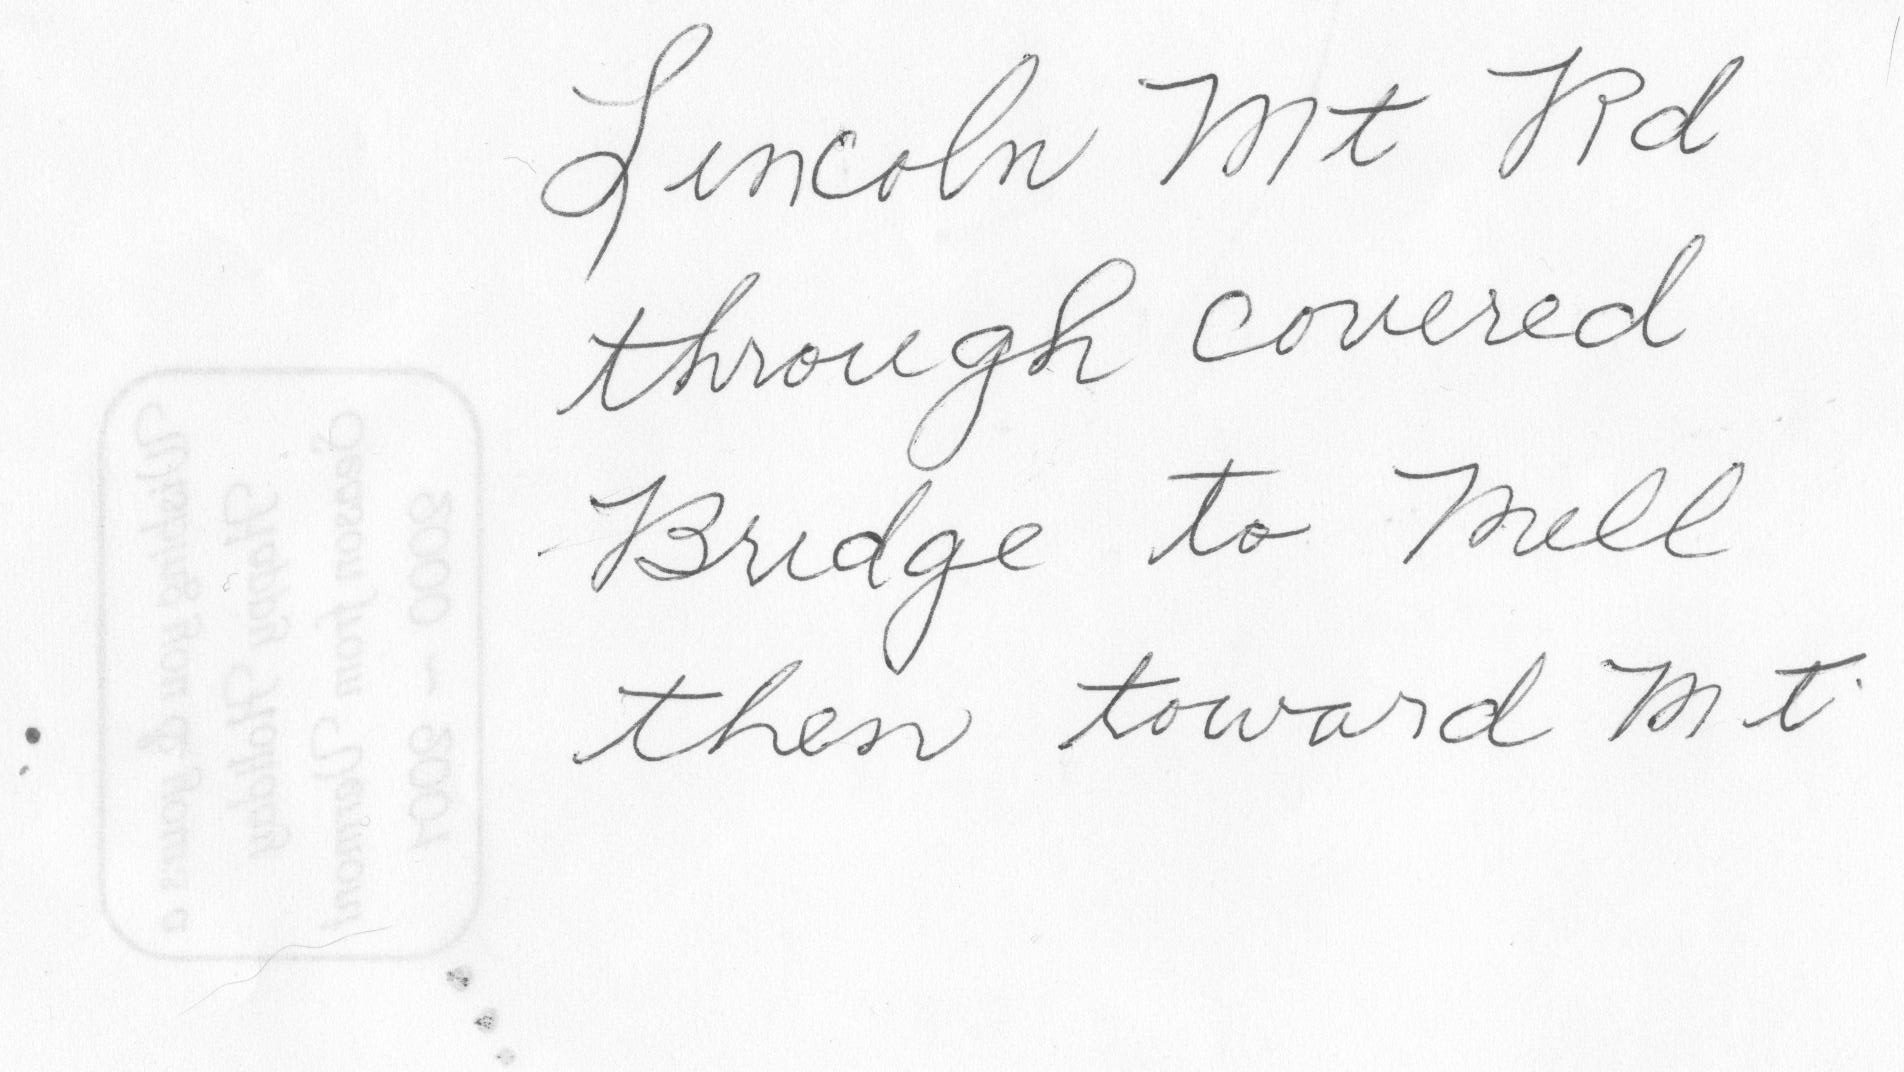 Lincoln Mt Rd
through covered
Bridge to Mill
then toward Mt
Wishing you & yours a
Happy Holiday
Season from Vermont
2000 – 2001